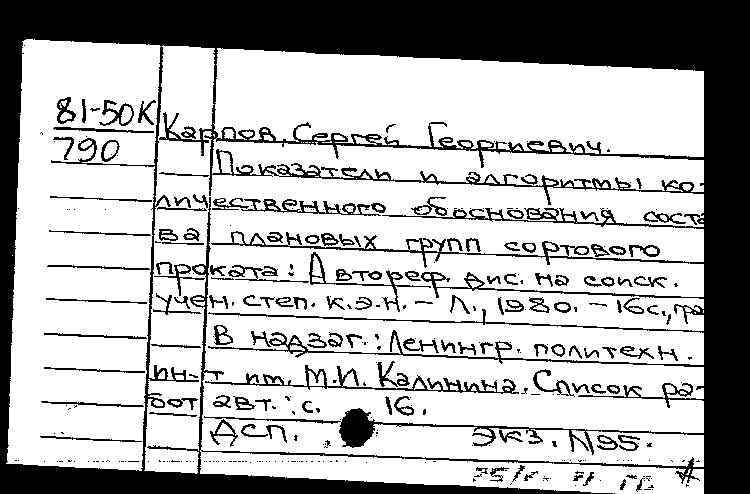 81-50К
790
Карпов, Сергей Георгиевич.
Показатели и алгоритмы ко-
личественного обоснования соста
ва плановых групп сортового
проката: Автореф. дис. на соиск.
учен. степ. к.э.н. – Л., 1980. – 16с., гра
В надзаг.: Ленингр. политехн.
ин-т им. М.И. Калинина. Список ра-
бот авт.: с. 16.
ДСП. Экз. N95.